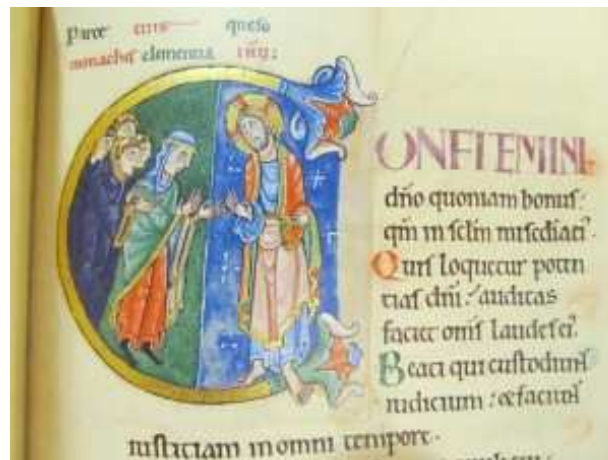 Parce tuis queso
monachis clementia ihu:
CONFITEMINI
dño quoniam bonus:
qm̄ in sclm̄ misedia ei'.
Quis loquetur poten
tias dñi: auditas
faciet omis laudes ei'.
Beati qui custodiunt
iudicium: & faciunt
iusticiam in omni tempore.